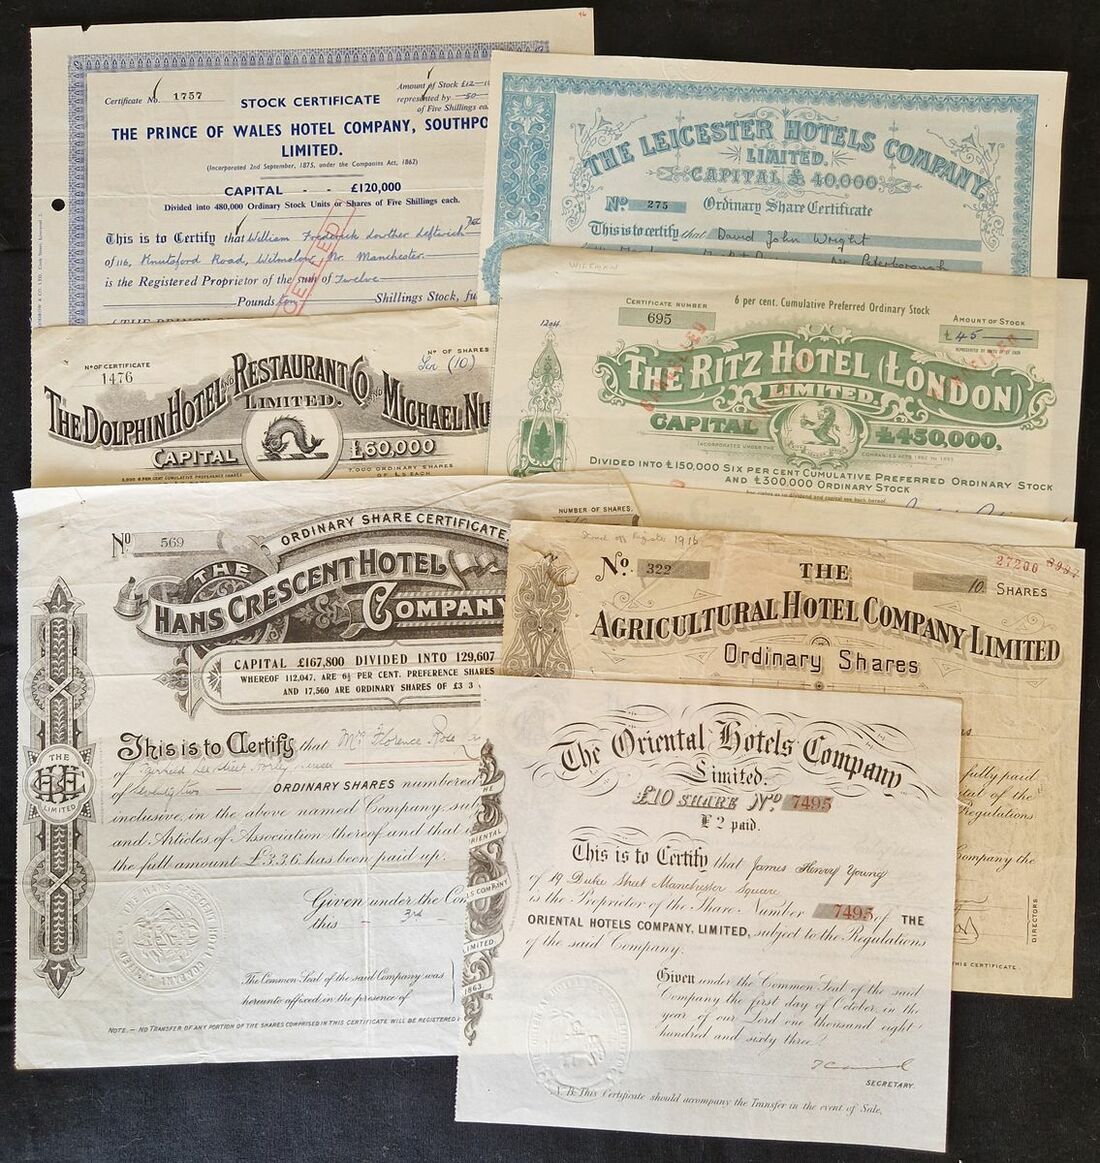 46
Certificate No. 1757
STOCK CERTIFICATE
Amount of Stock £12-10
represented by 50
of Five Shillings ea
THE PRINCE OF WALES HOTEL COMPANY, SOUTHPO
LIMITED.
(Incorporated 2nd September, 1875, under the Companies Act, 1862)
CAPITAL - - £120,000
Divided into 480,000 Ordinary Stock Units or Shares of Five Shillings each.
This is to Certify that William Frederick Lowther Leftwich
of 116, Knutsford Road, Wilmslow, Nr. Manchester.
is the Registered Proprietor of the sum of Twelve
Pounds Ten Shillings Stock, fu
THE LEICESTER HOTELS COMPANY
LIMITED.
CAPITAL £40,000
No 275 Ordinary Share Certificate
This is to certify that David John Wright
Peterborough
N° OF CERTIFICATE
1476
N° OF SHARES
Ten (10)
THE DOLPHIN HOTEL AND RESTAURANT CO AND MICHAEL NU
LIMITED.
CAPITAL £60,000
7,000 ORDINARY SHARES
OF £5 EACH
WILEMAN
CERTIFICATE NUMBER
695
6 per cent. Cumulative Preferred Ordinary Stock
AMOUNT OF STOCK
£45
12044
CANCELLED
THE RITZ HOTEL (LONDON)
LIMITED.
CAPITAL £450,000,
INCORPORATED UNDER THE COMPANIES ACTS
DIVIDED INTO £150,000 SIX PER CENT CUMULATIVE PREFERRED ORDINARY STOCK
AND £300,000 ORDINARY STOCK
No 569
ORDINARY SHARE CERTIFICATE
NUMBER OF SHARES.
THE
HANS CRESCENT HOTEL
COMPANY
CAPITAL £167,800 DIVIDED INTO 129,607
WHEREOF 112,047, ARE 6½ PER CENT. PREFERENCE SHARES
AND 17,560 ARE ORDINARY SHARES OF £3
This is to Certify that Mrs Florence Rose
of
of Seventy two ORDINARY SHARES numbered
inclusive, in the above named Company, sub
and Articles of Association thereof and that
the full amount £336 has been paid up.
THE
HCH
LIMITED
Given under the Com
this 3rd
The Common Seal of the said Company was
hereunto affixed in the presence of
NOTE.— NO TRANSFER OF ANY PORTION OF THE SHARES COMPRISED IN THIS CERTIFICATE WILL BE REGISTERED
1916
No. 322
THE
27200
10 SHARES
AGRICULTURAL HOTEL COMPANY LIMITED
Ordinary Shares
fully paid
of the
Regulations
Company the
DIRECTORS.
THIS CERTIFICATE.
The Oriental Hotels Company
Limited.
£10 SHARE No 7495
£2 paid.
This is to Certify that James Henry Young
of 19 Duke Street Manchester Square
is the Proprietor of the Share Number 7495 of THE
ORIENTAL HOTELS COMPANY, LIMITED, subject to the Regulations
of the said Company.
Given under the Common Seal of the said
Company the first day of October, in the
year of our Lord one thousand eight
hundred and sixty three.
SECRETARY.
N.B. This Certificate should accompany the Transfer in the event of Sale.
HE
RIENTAL
S COMPANY
LIMITED
1863